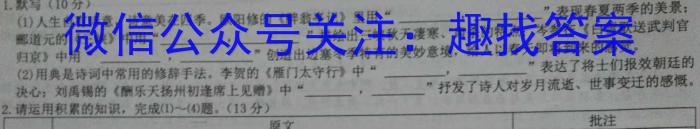 1.默写(10分)
(1)人生 美在四季。 阳修的《醉翁亭记》里用“ , ”表现春夏两季的美景;
郦道元的 绘出 秋天凄寒、 送武判官
归京》中用“ , ”创造出边塞冬季特有的美妙意境,
(2)用典是诗词中常用的修辞手法。李贺的《雁门太守行》中“ , ”表达了将士们报效朝廷的
决心;刘禹锡的《酬乐天扬州初逢席上见赠》中“ , ”抒发了诗人对岁月流逝、世事变迁的感慨。
2.请运用积累的知识,完成(1)~(4)题。(13分)
原文 批注
微信公众号关注:趣找答案